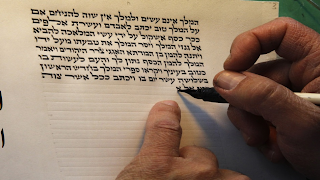 המלך אינם עשים ולמלך אין שוה להניחם אם
על המלך טוב יכתב לאבדם ועשרת אלפים
ככר כסף אשקול על ידי עשי המלאכה להביא
אל גנזי המלך ויסר המלך את טבעתו מעל ידו
ויתנה להמן בן המדתא האגגי צרר היהודים ויאמר
המלך להמן הכסף נתון לך והעם לעשות בו
כטוב בעיניך ויקראו ספרי המלך בחדש הראשון
בשלושה עשר יום בו ויכתב ככל אשר צוה